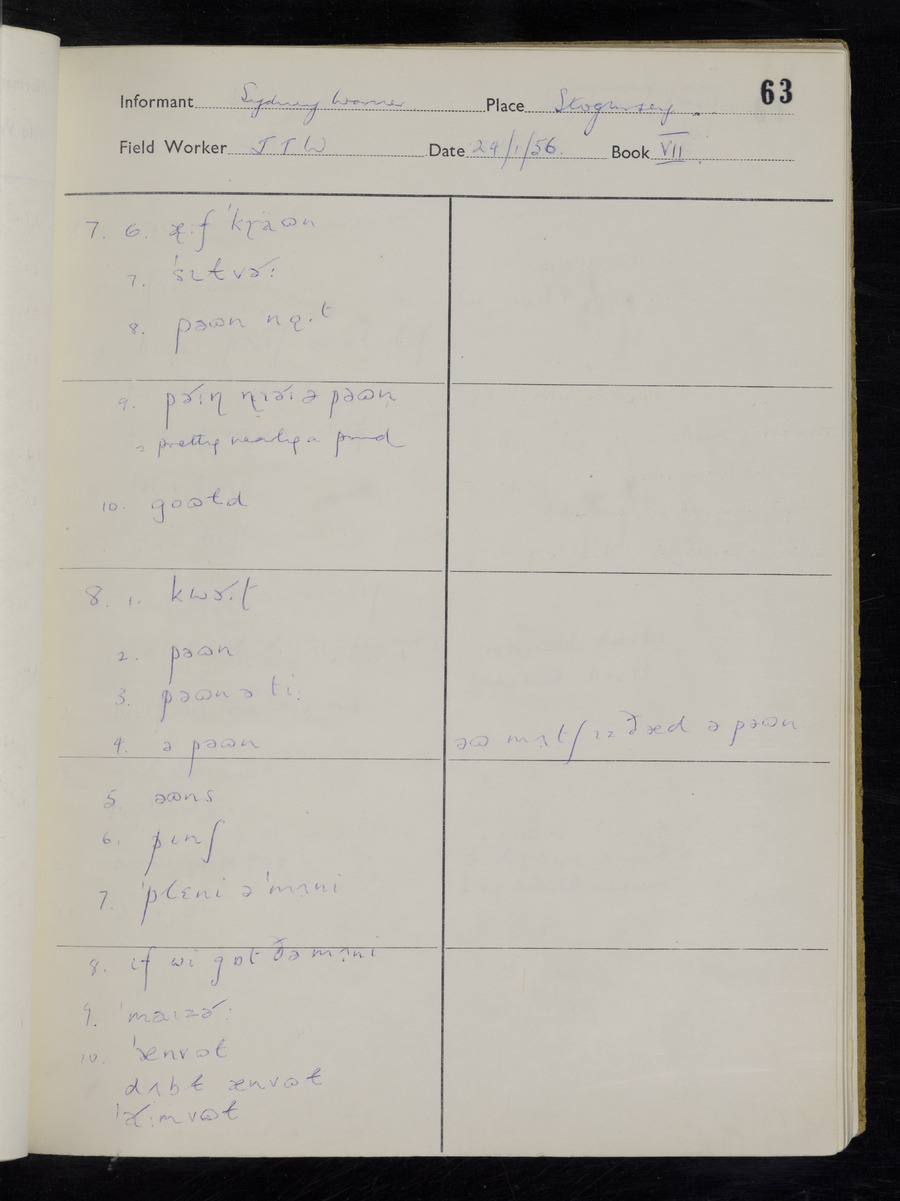 63
Informant Sydney Warner Place Stogursey
Field Worker J T W Date 29/1/56. Book VII
7. 6. æ̣·f ˈkɽäɷn
7. ˈsɪɫvə˞:
8. pəɷn
9. ə pəɷn
= pretty nearly a pound
10. goɷɫd
8. 1. kwə˞·ʈ
2. pəɷn
3. pəɷn ə ti:
4. ə pəɷn
əɷ ə pəɷn
5. əɷns
6. pɪnʃ
7. ˈpɫɛni ə ˈmʌ̣ni
8. ɪf wi gɒt ðə mʌ̣ni
9. ˈmaɪzə˞:
10. ˈænvɷɫ
dʌbɫ ænvɷɫ
ˈæ:mvɷɫ